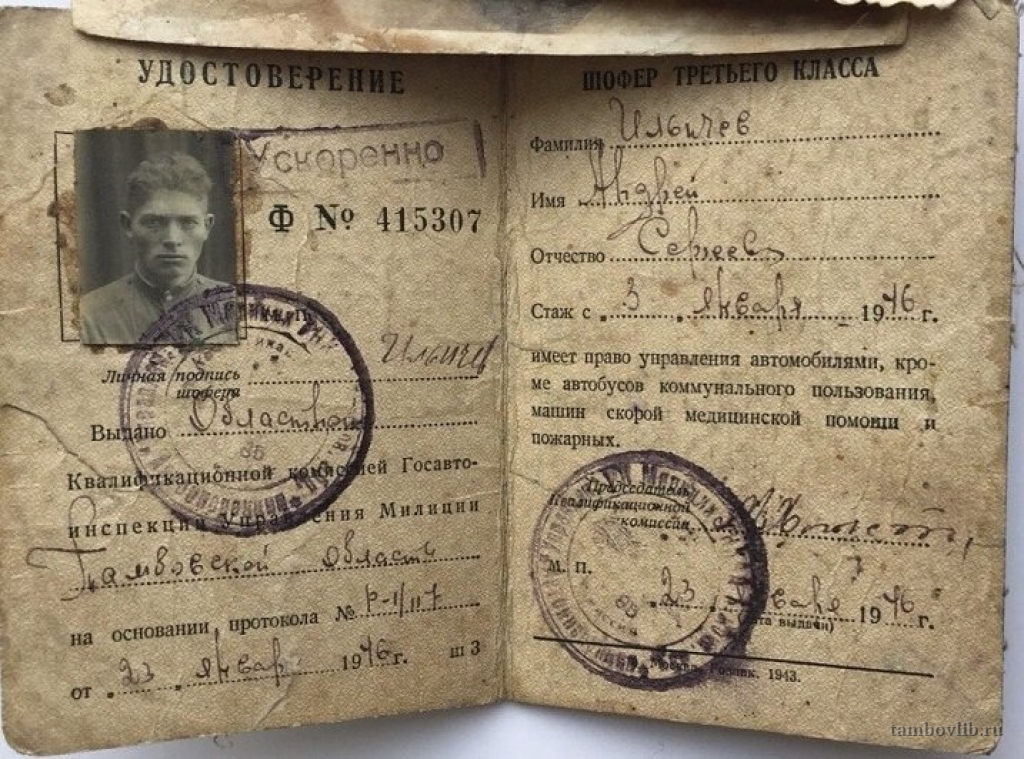 УДОСТОВЕРЕНИЕ
Ускоренно
Ф № 415307
Ильичев
Личная подпись
шофера
Выдано Областной
Квалификационной комиссией Госавто-
инспекции Управления Милиции
Тамбовской области
на основании протокола № Р-1/117
от 23 января 1946 г. ш 3
ШОФЕР ТРЕТЬЕГО КЛАССА
Фамилия Ильичев
Имя Андрей
Отчество Сергеев
Стаж с 3 января 1946 г.
имеет право управления автомобилями, кро-
ме автобусов коммунального пользования,
машин скорой медицинской помощи и
пожарных.
Председатель
Квалификационной
комиссии
М. П.
23 января 1946 г.
(дата выдачи)
Москва, Гознак. 1943.
tambovlib.ru